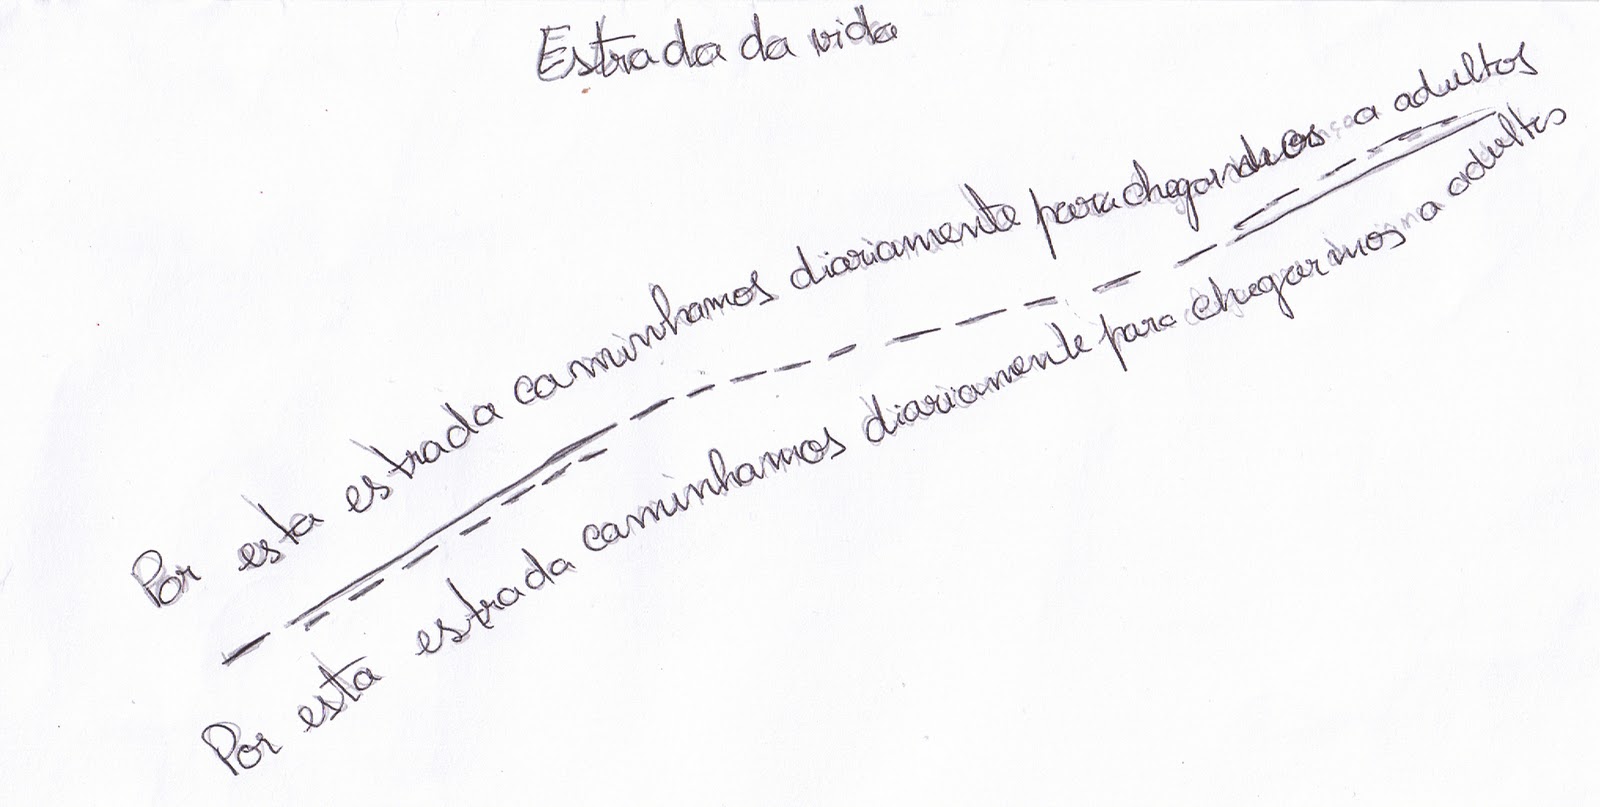 Estrada da vida
Por esta estrada caminhamos diariamente para chegarmos a adultos
Por esta estrada caminhamos diariamente para chegarmos a adultos